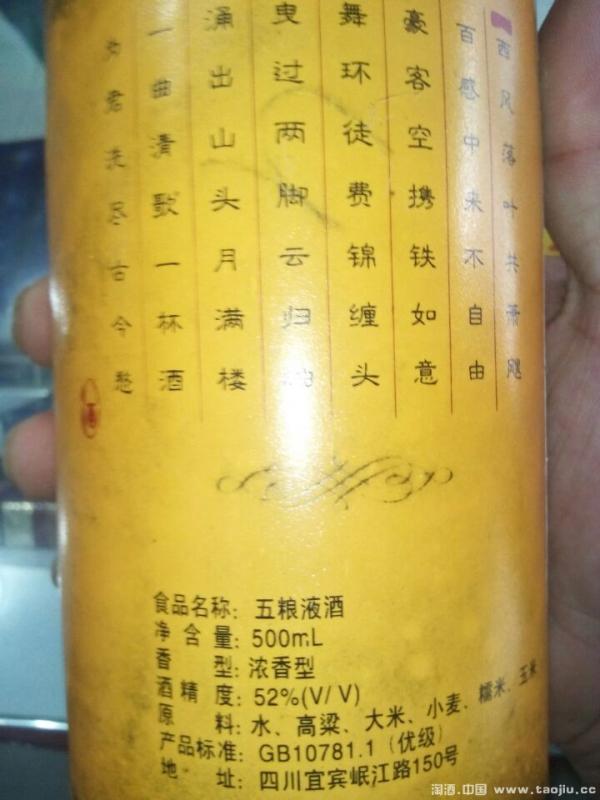 西风落叶共萧飕
百感中来不自由
豪客空携铁如意
舞环徒费锦缠头
曳过两脚云归
涌出山头月满楼
一曲清歌一杯酒
为君洗尽古今愁
食品名称：五粮液酒
净含量：500mL
香型：浓香型
酒精度：52%(V/V)
原料：水、高粱、大米、小麦、糯米、玉米
产品标准：GB10781.1（优级）
地址：四川宜宾岷江路150号
淘酒.中国 www.taojiu.cc